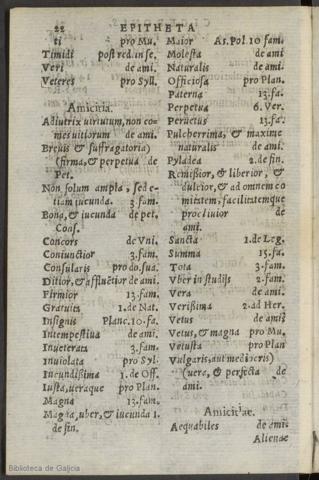 22 EPITHETA
ti pro Mu.
Timidi post red. in se.
Veri de ami.
Veteres pro Syll.
Amicitia.
Adiutrix uirtutum, non co-
mes uitiorum de ami.
Breuis & suffragatoria)
(firma, & perpetua de
Pet.
Non solum ampla, sed e-
tiam iucunda. 3. fam.
Bona, & iucunda de pet.
Cons.
Concors de Vni.
Coniunctior 3. fam.
Consularis pro do. sua.
Ditior, & affluetior de ami.
Firmior 13. fam.
Gratuita 1. de Nat.
Insignis Planc. 10. fa.
Intempestiua de ami.
Inueterata 3. fam.
Inuiolata pro Syl.
Iucundißima 1. de Off.
Iusta, ueraque pro Plan.
Magna 13. fam.
Magna, uber, & iucunda 1.
de fin.
Maior As. Pol. 10 fam.
Molesta de ami
Naturalis de ami.
Officiosa pro Plan.
Paterna 13. fa.
Perpetua 6. Ver.
Peruetus 13. fa.
Pulcherrima, & maxime
naturalis de ami.
Pyladea 2. de fin.
Remißior, & liberior, &
dulcior, & ad omnem co
mitatem, facilitatemque
procliuior de
ami.
Sancta 1. de Leg.
Summa 15. fa.
Tota 3. fam.
Vber in studijs 2. fam.
Vera de ami.
Verißima 2. ad Her.
Vetus de ami
Vetus, & magna pro Mu.
Vetusta pro Plan
Vulgaris, aut mediocris)
(uera, & perfecta de
ami.
Amicitiae.
Aequabiles de ami.
Alienae
Biblioteca de Galicia